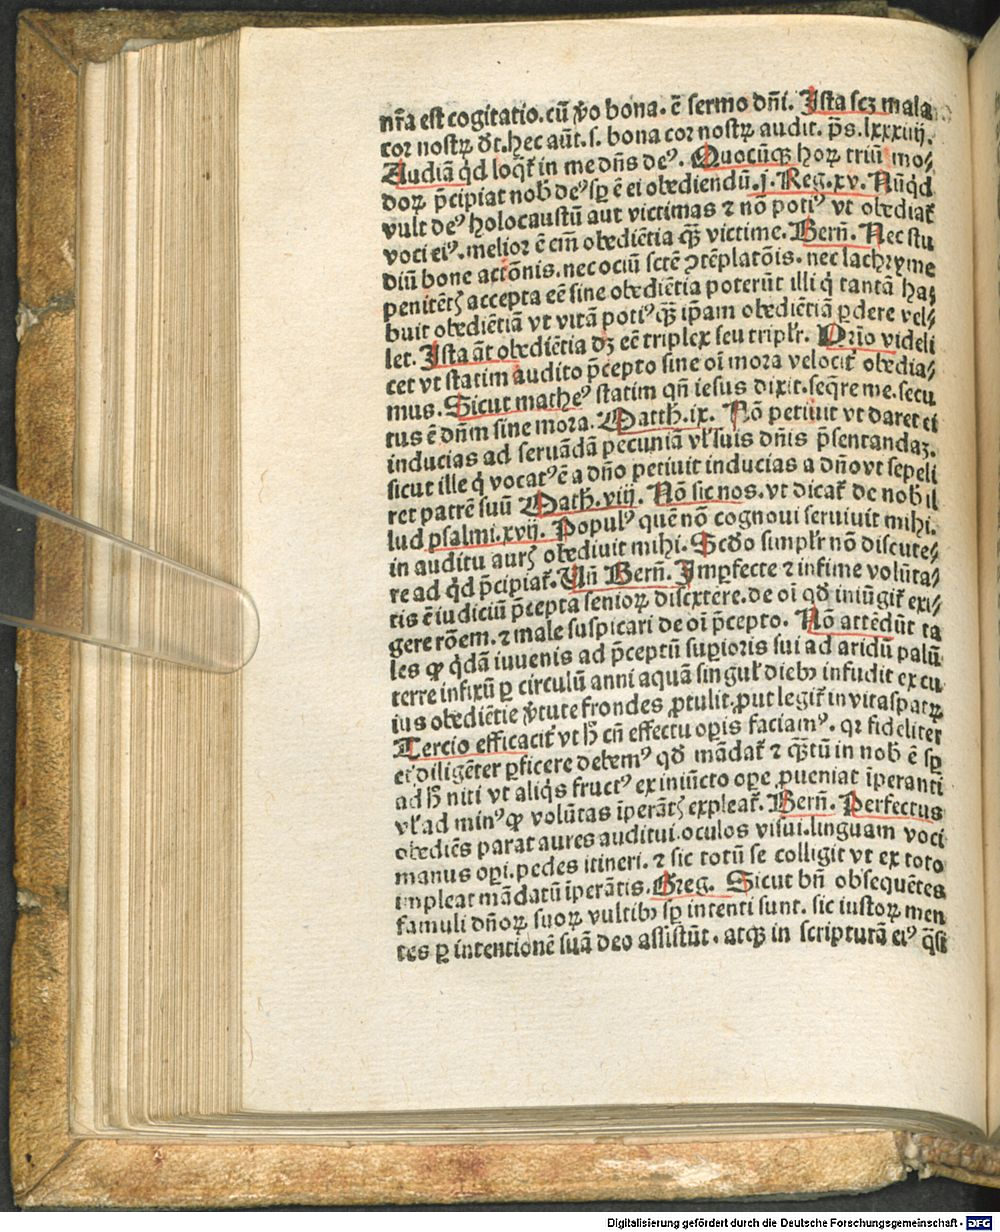 nr̃a est cogitatio. cũ ꝟo bona. ẽ sermo dñi. Ista scꝫ mala
cor nostꝝ dr̃t. hec aũt. s. bona cor nostꝝ audit. p̃s. lxxxiiij.
Audiã qͥd loqr̃ in me dñs deꝰ. Quocũqꝫ hoꝝ triũ mo⸗
doꝝ p̃cipiat nob̃ deꝰ sꝑ ẽ ei obediendũ. j. Reg. xv. Nũqͥd
vult deꝰ holocaustũ aut victimas ⁊ nõ potiꝰ vt obediat̃
voci eiꝰ. melior ẽ em̃ obediẽtia qꝫ̃ victime. Bern̄. Nec stu
diũ bone actõnis. nec ociũ sctẽ ↄtẽplatõis. nec lachryme
penitẽtꝭ accepta eẽ sine obediẽtia poterũt illi qͥ tantã ha⸗
buit obediẽtiã vt vitã potiꝰ qꝫ̃ ip̃am obediẽtiã ꝑdere vel⸗
let. Ista at̃ obediẽtia dꝫ eẽ triplex seu tripl̃r. Prĩo videli
cet vt statim audito p̃cepto sine oĩ mora velocit̃ obedia⸗
mus. Sicut matheꝰ statim qñ iesus dixit. seq̃re me. secu
tus ẽ dñm sine mora. Matth̃. ix. Nõ petiuit vt daret ei
inducias ad seruãdã pecuniã vl̃ suis dñis p̃sentandaꝫ.
sicut ille qͥ vocatꝰ ẽ a dño petiuit inducias a dño vt sepeli
ret patrẽ suũ Math̃. viij. Nõ sic nos. vt dicat̃ de nob̃ il
lud psalmi. xvij. Populꝰ quẽ nõ cognoui seruiuit mihi.
in auditu aurꝭ obediuit mihi. Scd̃o simpl̃r nõ discute⸗
re ad qͥd p̃cipiat̃. Uñ Bern̄. Imꝑfecte ⁊ infime volũta⸗
tis ẽ iudiciũ p̃cepta senioꝝ discxtere. de oĩ qd̃ iniũgit̃ exi⸗
gere rõem. ⁊ male suspicari de oĩ p̃cepto. Nõ attẽdũt ta
les ꝙ qͥdã iuuenis ad p̃ceptũ suꝑioris sui ad aridũ palũ
terre infixũ ꝑ circulũ anni aquã singul̃ dieb⁊ infudit ex cu
ius obediẽtie ꝟtute frondes ꝓtulit. ꝓut legit̃ in vitaspatꝝ
Tercio efficacit̃ vt h̃ cñ effectu oꝑis faciamꝰ. qr fideliter
et diligẽter ꝑficere debemꝰ qd̃ mãdat̃ ⁊ qꝫ̃tũ in nob̃ ẽ sꝑ
ad h̃ niti vt aliqͥs fructꝰ ex iniũcto oꝑe ꝓueniat ĩperanti
vl̃ ad minꝰ ꝙ volũtas ĩperãtꝭ expleat̃. Bern̄. Perfectus
obediẽs parat aures auditui. oculos visui. linguam voci
manus oꝑi. pedes itineri. ⁊ sic totũ se colligit vt ex toto
impleat mãdatũ ĩperãtis. Greg. Sicut bñ obsequẽtes
famuli dñoꝝ suoꝝ vultib⁊ sꝑ intenti sunt. sic iustoꝝ men
tes ꝑ intentionẽ suã deo assistũt. atqꝫ in scripturã eiꝰ q̃si
Digitalisierung gefördert durch die Deutsche Forschungsgemeinschaft - DFG